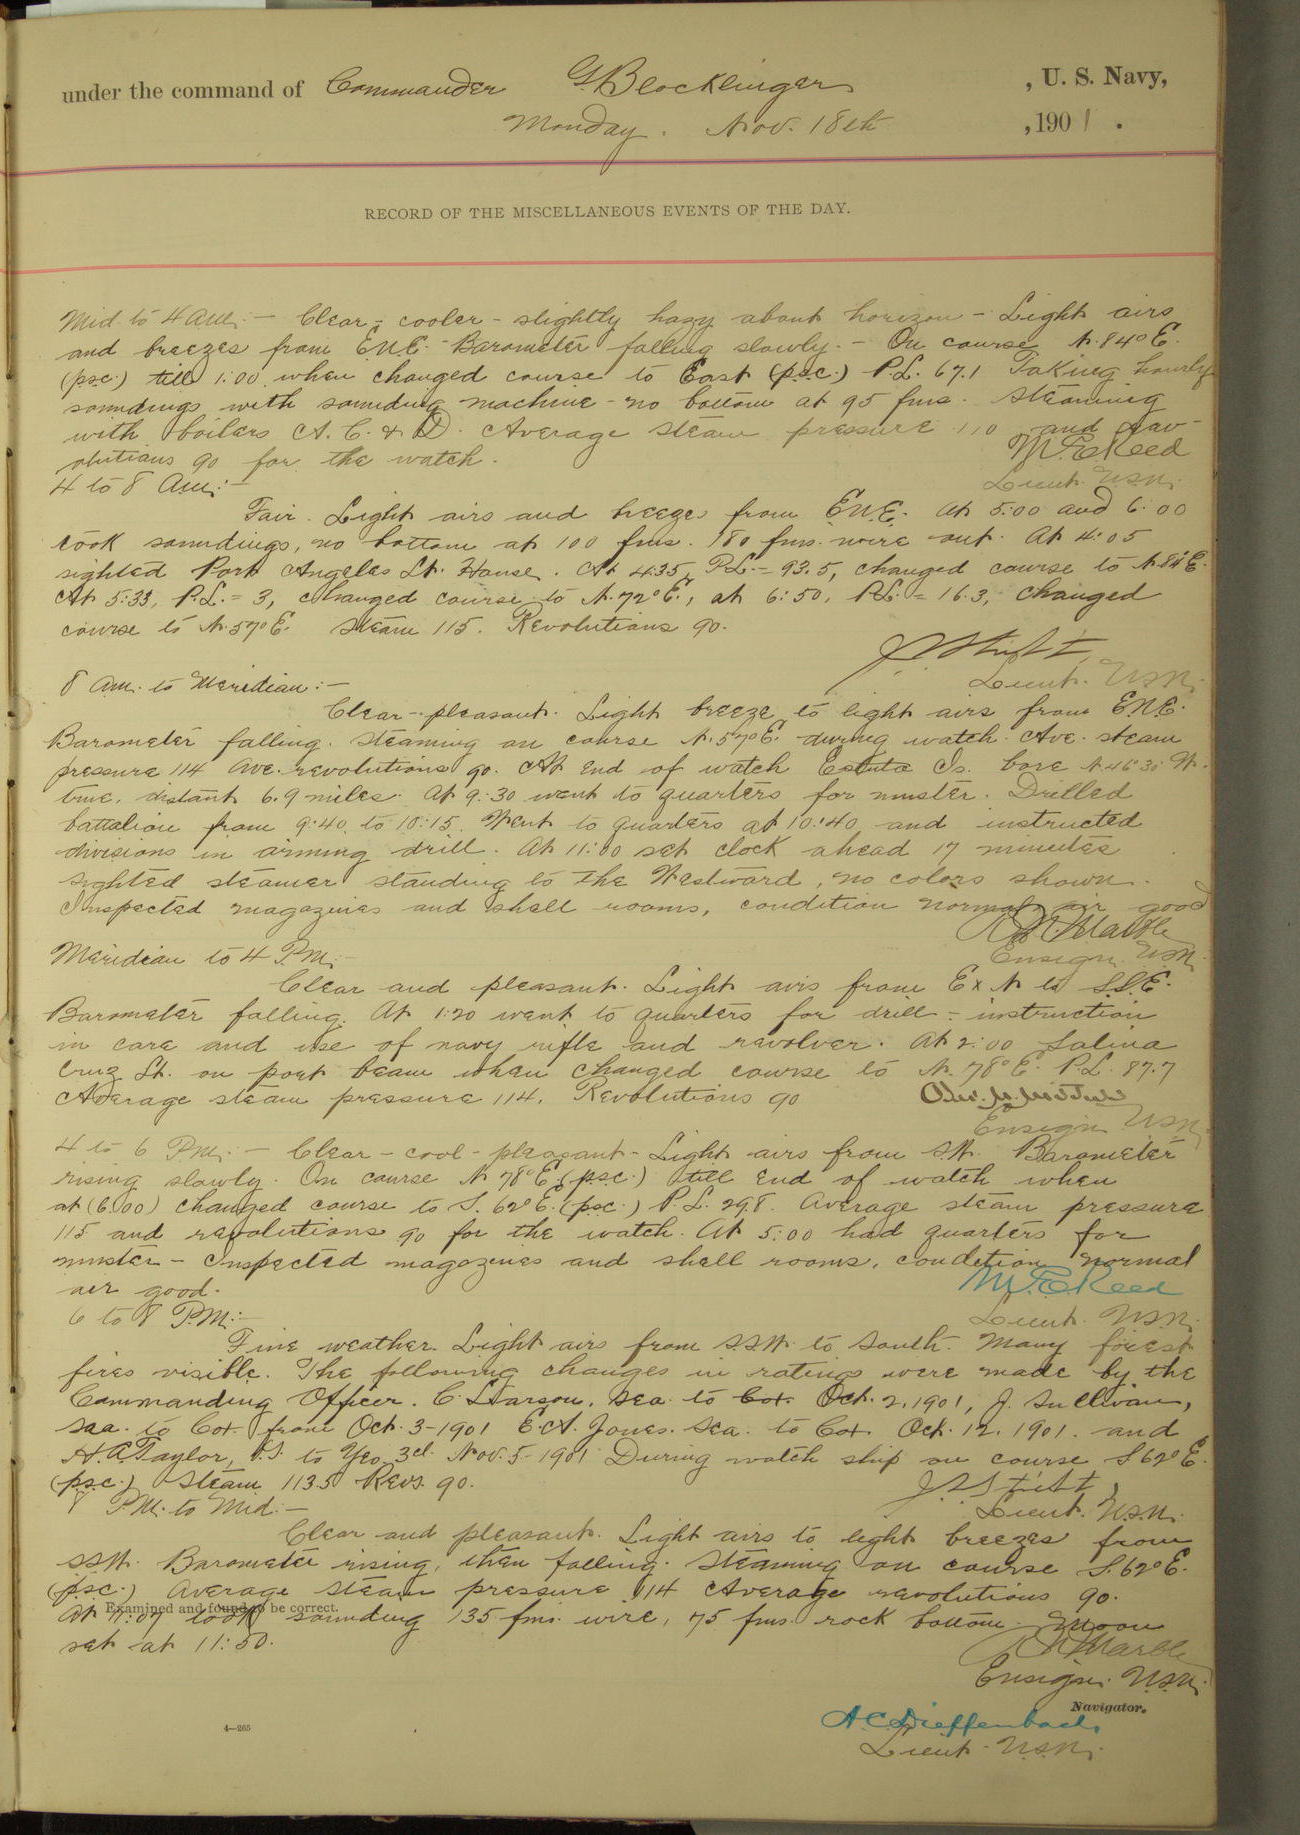 under the command of Commander G. Blocklinger, U. S. Navy,
Monday. Nov. 18th, 1901.
RECORD OF THE MISCELLANEOUS EVENTS OF THE DAY.
Mid. to 4 a.m.:— Clear - cooler - slightly hazy about horizon - Light airs
and breezes from E.N.E. - Barometer falling slowly. - On course N.84°E.
(p.s.c.) till 1:00 when changed course to East (p.s.c.) P.L. 67.1 Taking hourly
soundings with sounding machine - no bottom at 95 fms. Steaming
with boilers A. C. & D. Average steam pressure 110 and rev-
olutions 90 for the watch.
M. E. Reed
Lieut. U.S.N.
4 to 8 a.m.:—
Fair. Light airs and breezes from E.N.E. At 5:00 and 6:00
took soundings, no bottom at 100 fms. 180 fms. wire out. At 4:05
sighted Port Angeles Lt. House. At 4:35, P.L. = 93.5, changed course to
At 5:33, P.L. = 3, changed course to N.72°E., at 6:50, P.L. = 16.3, changed
course to N.57°E. Steam 115. Revolutions 90.
Lieut. U.S.N.
8 a.m. to Meridian:—
Clear - pleasant. Light breeze to light airs from E.N.E.
Barometer falling. Steaming on course N.57°E. during watch. Ave. steam
pressure 114 Ave. revolutions 90. At end of watch Is. bore N.46°30' W.
true, distant 6.9 miles. At 9:30 went to quarters for muster. Drilled
battalion from 9:40 to 10:15. Went to quarters at 10:40 and instructed
divisions in aiming drill. At 11:00 set clock ahead 17 minutes
sighted steamer standing to the Westward, no colors shown.
Inspected magazines and shell rooms, condition normal, air good
R. N. Marble
Ensign U.S.N.
Meridian to 4 P.M.:—
Clear and pleasant. Light airs from E x N to S.S.E.
Barometer falling. At 1:20 went to quarters for drill - instruction
in care and use of navy rifle and revolver. At 2:00 Salina
Cruz Lt. on port beam when changed course to N. 78°E. P.L. 87.7
Average steam pressure 114. Revolutions 90
Ensign U.S.N.
4 to 6 P.M.:— Clear - cool - pleasant - Light airs from S.W. Barometer
rising slowly. On course N 78°E. (p.s.c.) till end of watch when
at (6:00) changed course to S. 62°E. (p.s.c.) P.L. 29.8. Average steam pressure
115 and revolutions 90 for the watch. At 5:00 had quarters for
muster - Inspected magazines and shell rooms, condition normal
air good.
M. E. Reed
Lieut. U.S.N.
6 to 8 P.M.:—
Fine weather. Light airs from S.S.W. to South. Many forest
fires visible. The following changes in ratings were made by the
Commanding Officer. C. Larson, Sea. to Cox. Oct. 2, 1901, J. Sullivan,
Sea. to Cox. from Oct. 3-1901 E.A. Jones. Sea. to Cox. Oct. 12. 1901. and
H. A. Taylor, to Yeo. 3cl. Nov. 5-1901 During watch ship on course S 62°E.
(p.s.c.) Steam 113.5 Revs. 90.
Lieut. U.S.N.
8 P.M. to Mid.:—
Clear and pleasant. Light airs to light breezes from
S.S.W. Barometer rising, then falling. Steaming on course S. 62°E.
(p.s.c.) Average steam pressure 114 Average revolutions 90.
Examined and found to be correct.
At 7:07 took sounding 135 fms. wire, 75 fms. rock bottom Moon
set at 11:50.
R. N. Marble
Ensign U.S.N.
Navigator.
A. C. Dieffenbach
Lieut. U.S.N.
4—265